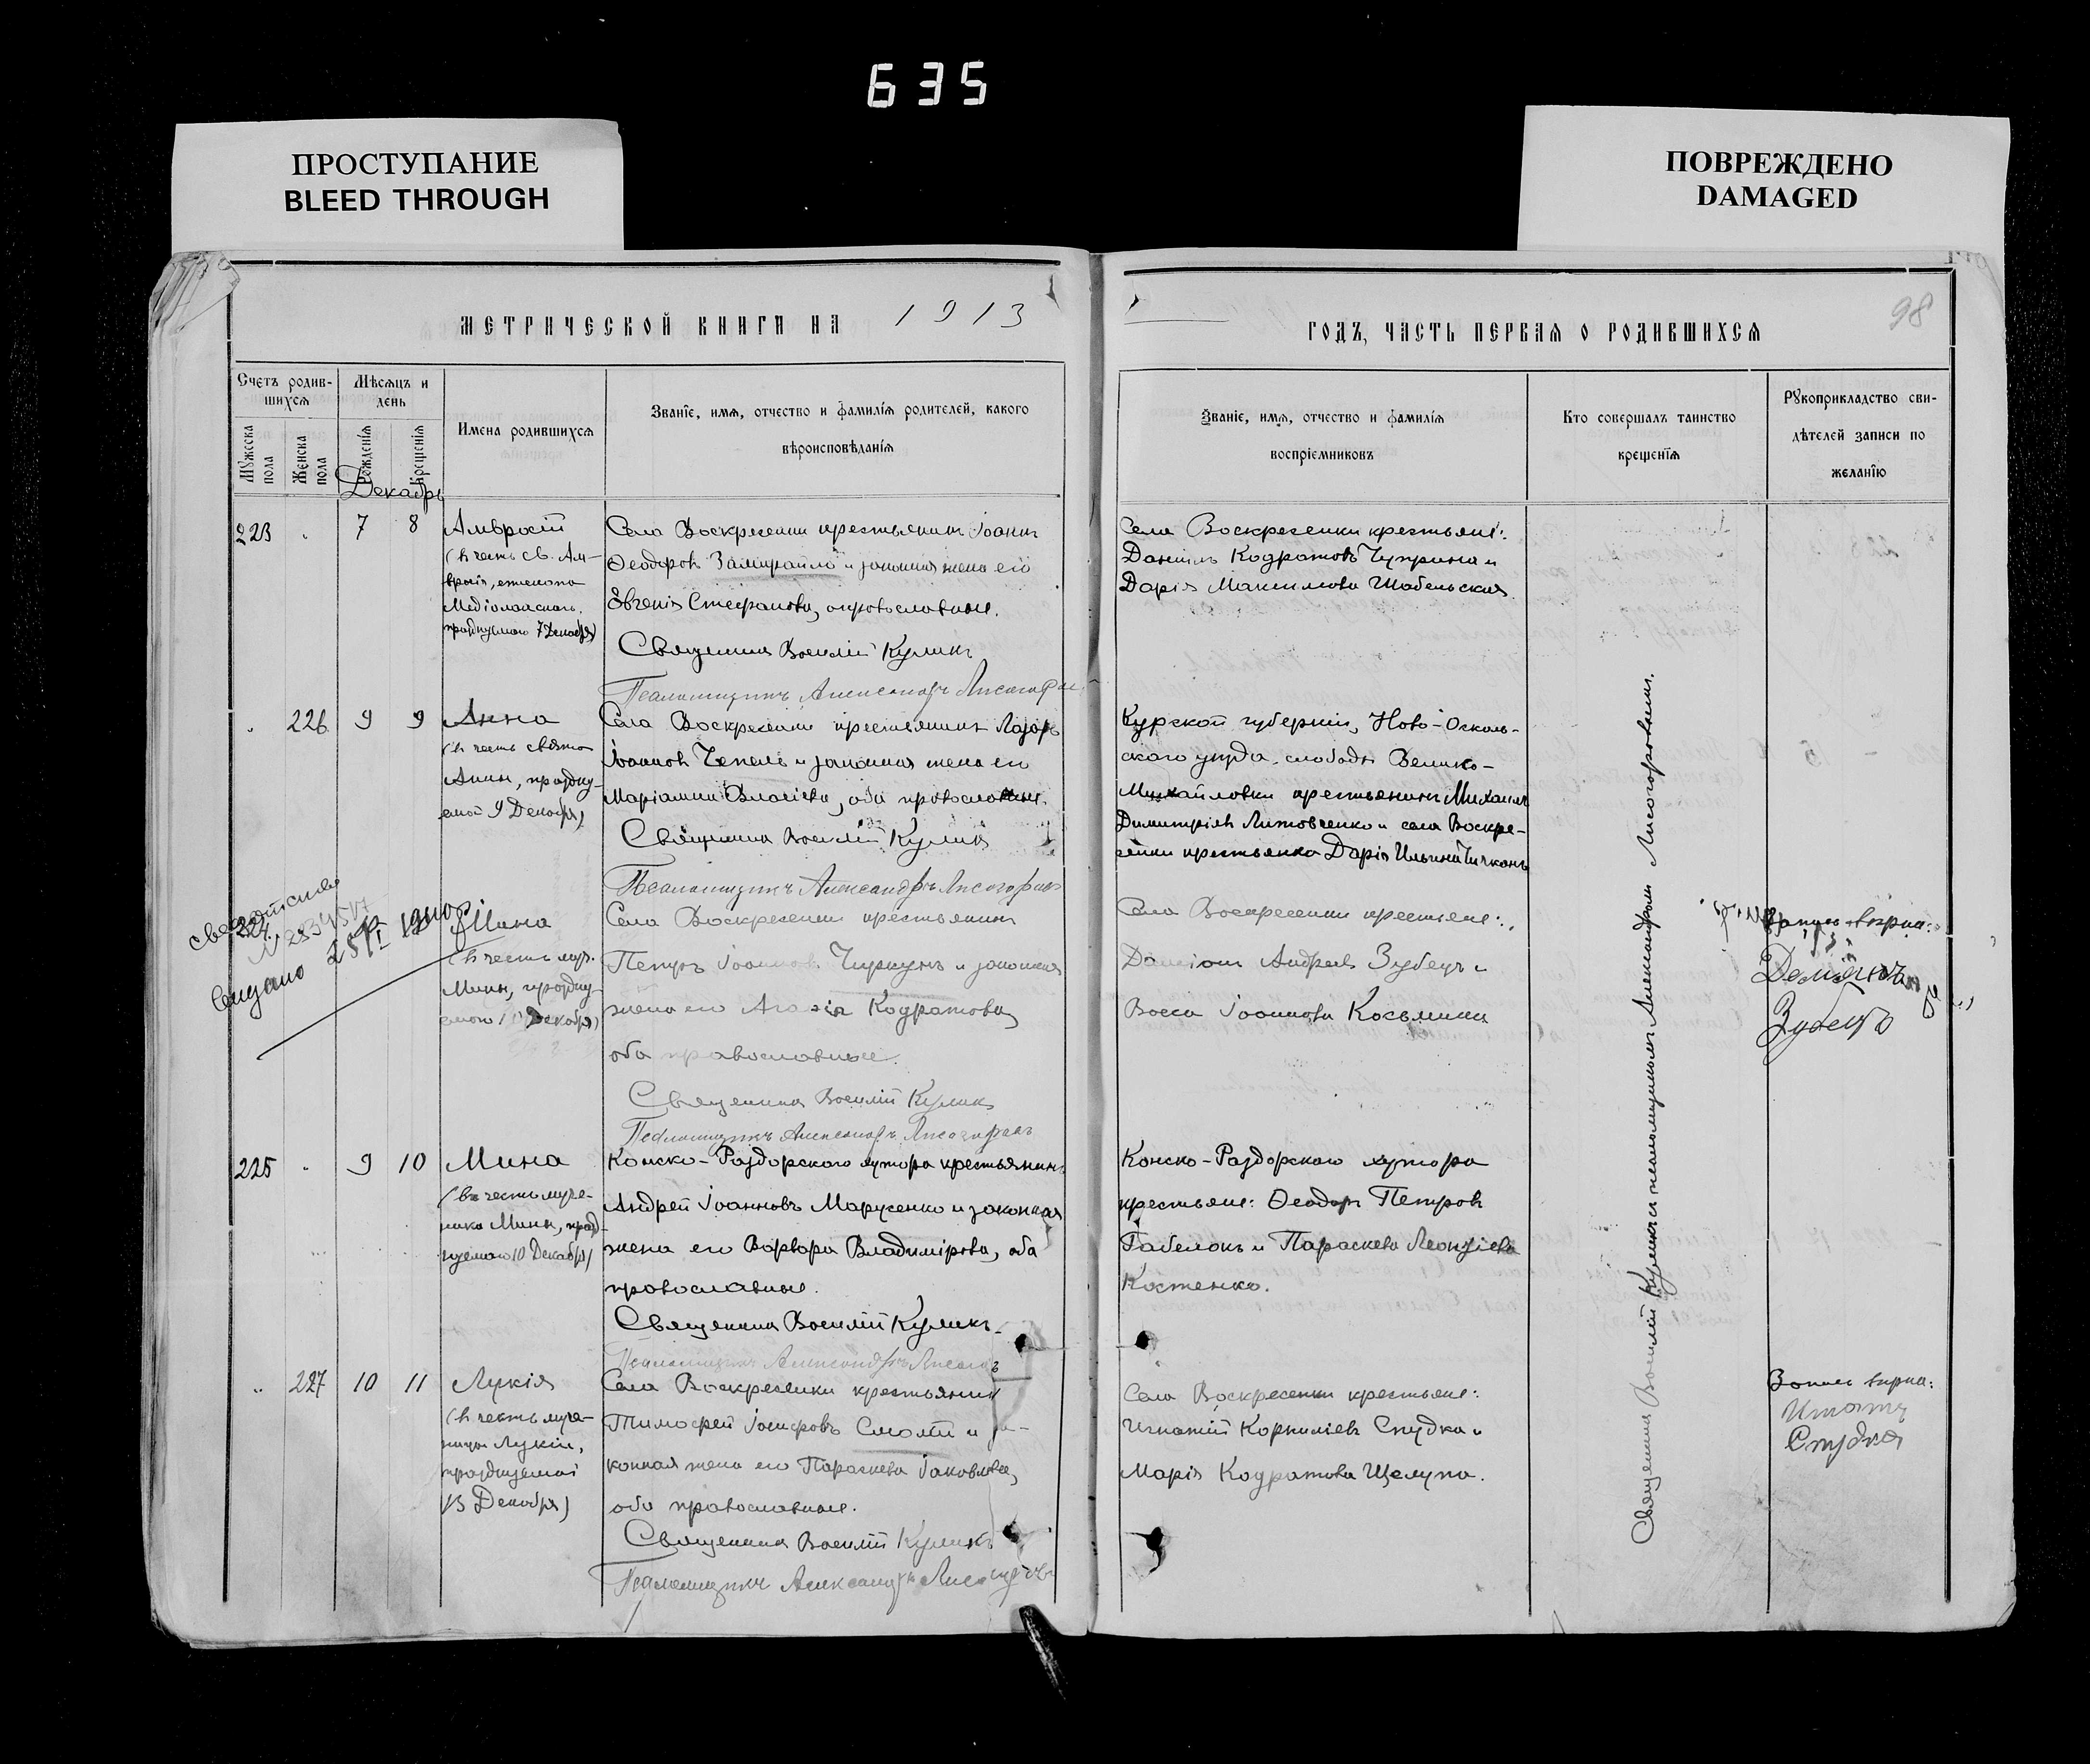 635
ПРОСТУПАНИЕ
BLEED THROUGH
ПОВРЕЖДЕНО
DAMAGED
МЕТРИЧЕСКОЙ КНИГИ НА 1913
ГОДЪ, ЧАСТЬ ПЕРВАЯ О РОДИВШИХСЯ
98
Счетъ родив-
шихся
Мѣсяцъ и
день
Мужеска пола
Женска пола
Рожденія
Крещенія
Имена родившихся
Званіе, имя, отчество и фамилія родителей, какого
вѣроисповѣданія
Званіе, имя, отчество и фамилія
воспріемниковъ
Кто совершалъ таинство
крещенія
Рукоприкладство сви-
дѣтелей записи по
желанію
Декабрь
223 7 8
Амвросій
(въ честь св. Ам-
вросія, епископа
Медіоланскаго,
празднуемаго 7 Декабря)
Села Воскресенки крестьянинъ Іоаннъ
Ѳеодоровъ Замирайло и законная жена его
Евгенія Стефанова, православные.
Священникъ Василій Куликъ
Псаломщикъ Александръ Лисогорскі
Села Воскресенки крестьяне:
Даніилъ Кодратовъ Чуприна и
Дарія Максимова Шабельская.
226 9 9
Анна
(въ честь святой
Анны, праздну-
емой 9 Декабря)
Села Воскресенки крестьянинъ Лазарь
Іоанновъ Чепель и законная жена его
Маріамна Власіева, оба православные.
Священникъ Василій Куликъ
Псаломщикъ Александръ Лисогорскі
Курской губерніи, Ново-Осколь-
скаго уѣзда, слободы Велико-
Михайловки крестьянинъ Михаилъ
Димитріевъ Литовченко и села Воскре-
сенки крестьянка Дарія Ильина
свидетельство
224
выдано 25/I 1940
Мина
(въ честь муч.
Мины, праздну-
емаго Декабря)
Села Воскресенки крестьянинъ
Петръ Іоанновъ Чиркунъ и законная
жена его Агаѳія Кодратова,
оба православные.
Священникъ Василій Куликъ
Псаломщикъ Александръ Лисогорскі
Села Воскресенки крестьяне:
Даміанъ Андреевъ Зубецъ и
Васса Іоаннова Косьмина
Запись вѣрна:
Деміянъ
Зубецъ
225 9 10
Мина
(въ честь муче-
ника Мины, празд-
нуемаго 10 Декабря)
Конско-Раздорскаго хутора крестьянинъ
Андрей Іоанновъ Марусенко и законная
жена его Варвара Владимірова, оба
православные.
Священникъ Василій Куликъ
Псаломщикъ Александръ
Конско-Раздорскаго хутора
крестьяне: Ѳеодоръ Петровъ
Габелокъ и Параскева Леонтіева
Костенко.
227 10 11
Лукія
(въ честь муче-
ницы Лукіи,
празднуемой
13 Декабря)
Села Воскресенки крестьянинъ
Тимофей Іосифовъ Смолій и за-
конная жена его Параскева Іаковлева,
оба православные.
Священникъ Василій Куликъ
Псаломщикъ Александръ
Села Воскресенки крестьяне:
Игнатій Корниліевъ Спудка и
Марія Кодратова Щелупа.
Запись вѣрна:
Игнатъ
Спудка
Священникъ Василій Куликъ съ псаломщикомъ Александромъ Лисогорскимъ.